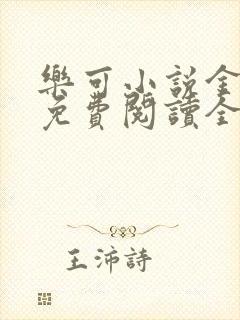 樂可小說全
免費閱讀全
王沛詩